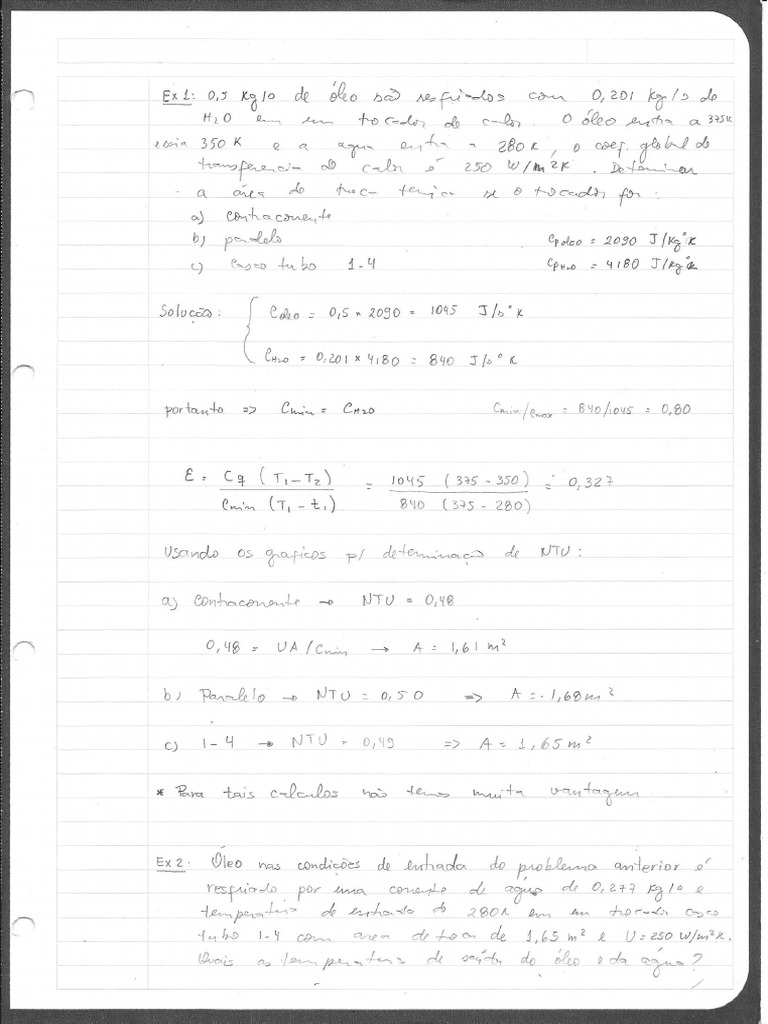 Ex 1: 0,5 Kg/s de óleo são resfriados com 0,201 Kg/s de
H2O em um trocador de calor. O óleo entra a 375K
e sai a 350 K e a agua entra a 280 K, o coef. global de
transferencia de calor é 250 W/m²K. Determinar
a área de troca termica se o trocador for:
a) contracorrente
b) paralelo Cp óleo = 2090 J/Kg°K
c) casco tubo 1-4 Cp H2O = 4180 J/Kg°K
Solução: Cóleo = 0,5 × 2090 = 1045 J/s°K
CH2O = 0,201 × 4180 = 840 J/s°K
portanto => Cmin = CH2O Cmin/Cmax = 840/1045 = 0,80
ε = Cq (T1 - T2) / Cmin (T1 - t1) = 1045 (375 - 350) / 840 (375 - 280) = 0,327
Usando os graficos p/ determinação de NTU:
a) contracorrente → NTU = 0,48
0,48 = UA/Cmin → A = 1,61 m²
b) Paralelo → NTU = 0,50 => A = 1,68 m²
c) 1-4 → NTU = 0,49 => A = 1,65 m²
* Para tais calculos não temos muita vantagem
Ex 2: Óleo nas condições de entrada do problema anterior é
resfriado por uma corrente de água de 0,277 Kg/s e
temperatura de entrada de 280K em um trocador casco
tubo 1-4 com area de troca de 1,65 m² e U = 250 W/m²K.
Quais as temperaturas de saída do óleo e da água?